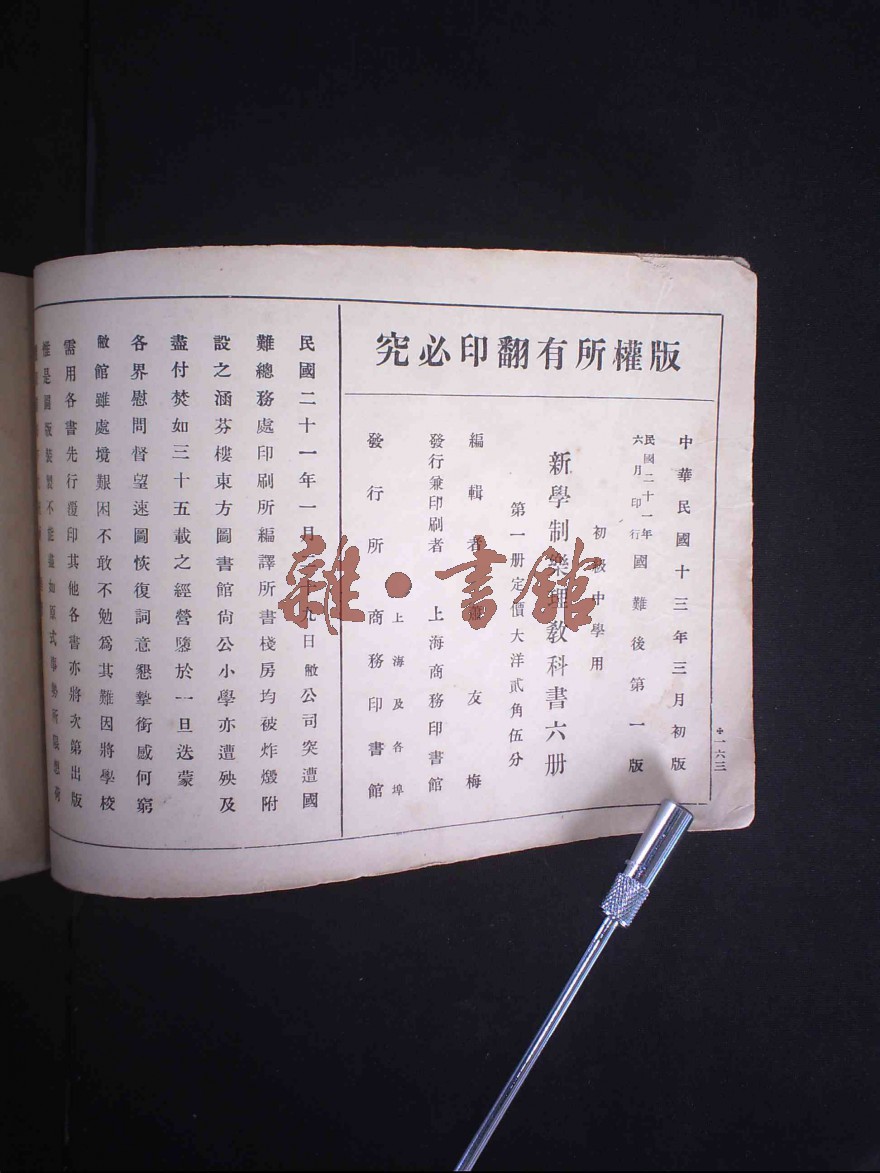 版權所有翻印必究
中華民國十三年三月初版
民國二十一年
六月印行
國難後第一版
初級中學用
新學制樂理教科書六册
第一册定價大洋貳角伍分
編輯者 友梅
發行兼印刷者 上海商務印書館
發行所 商務印書館
上海及各埠
一六三
民國二十一年一月 九日敝公司突遭國
難總務處印刷所編譯所書棧房均被炸燬附
設之涵芬樓東方圖書館尙公小學亦遭殃及
盡付焚如三十五載之經營墮於一旦迭蒙
各界慰問督望速圖恢復詞意懇摯銜感何窮
敝館雖處境艱困不敢不勉爲其難因將學校
需用各書先行覆印其他各書亦將次第出版
惟是圖版裝製不能盡如原式事勢所限想荷
雜·書館